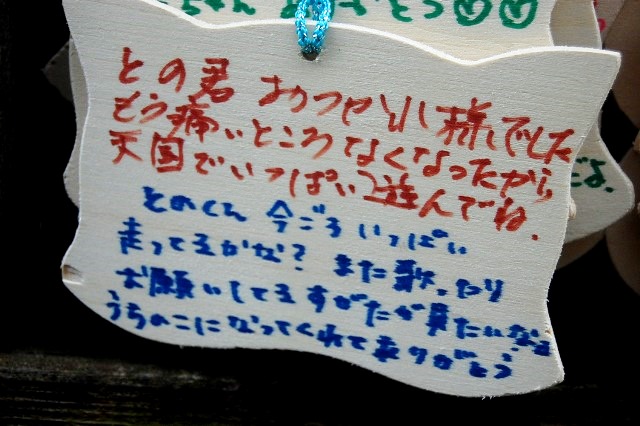 ちゃん ありがとう
との君 おつかれ様でした
もう痛いところなくなったから
天国でいっぱい遊んでね.
とのくん 今ごろ いっぱい
走ってるかな? また歌ったり
お願いしてるすがたが見たいなぁ
うちのこになってくれて ありがとう
だよ.